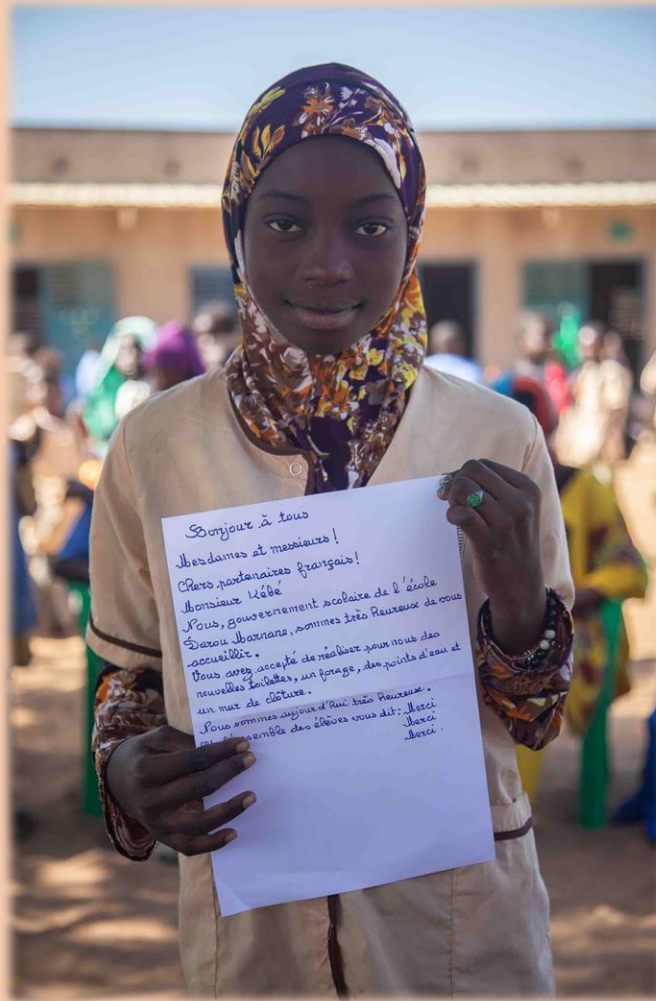 Bonjour à tous
Mesdames et messieurs !
Chers partenaires français !
Monsieur Kébé
Nous, gouvernement scolaire de l'école
Darou Marnane, sommes très heureux de vous
accueillir.
Vous avez accepté de réaliser pour nous des
nouvelles toilettes, un forage, des points d'eau et
un mur de clôture.
Nous sommes aujourd'hui très heureux.
l'ensemble des élèves vous dit : Merci
Merci
Merci.